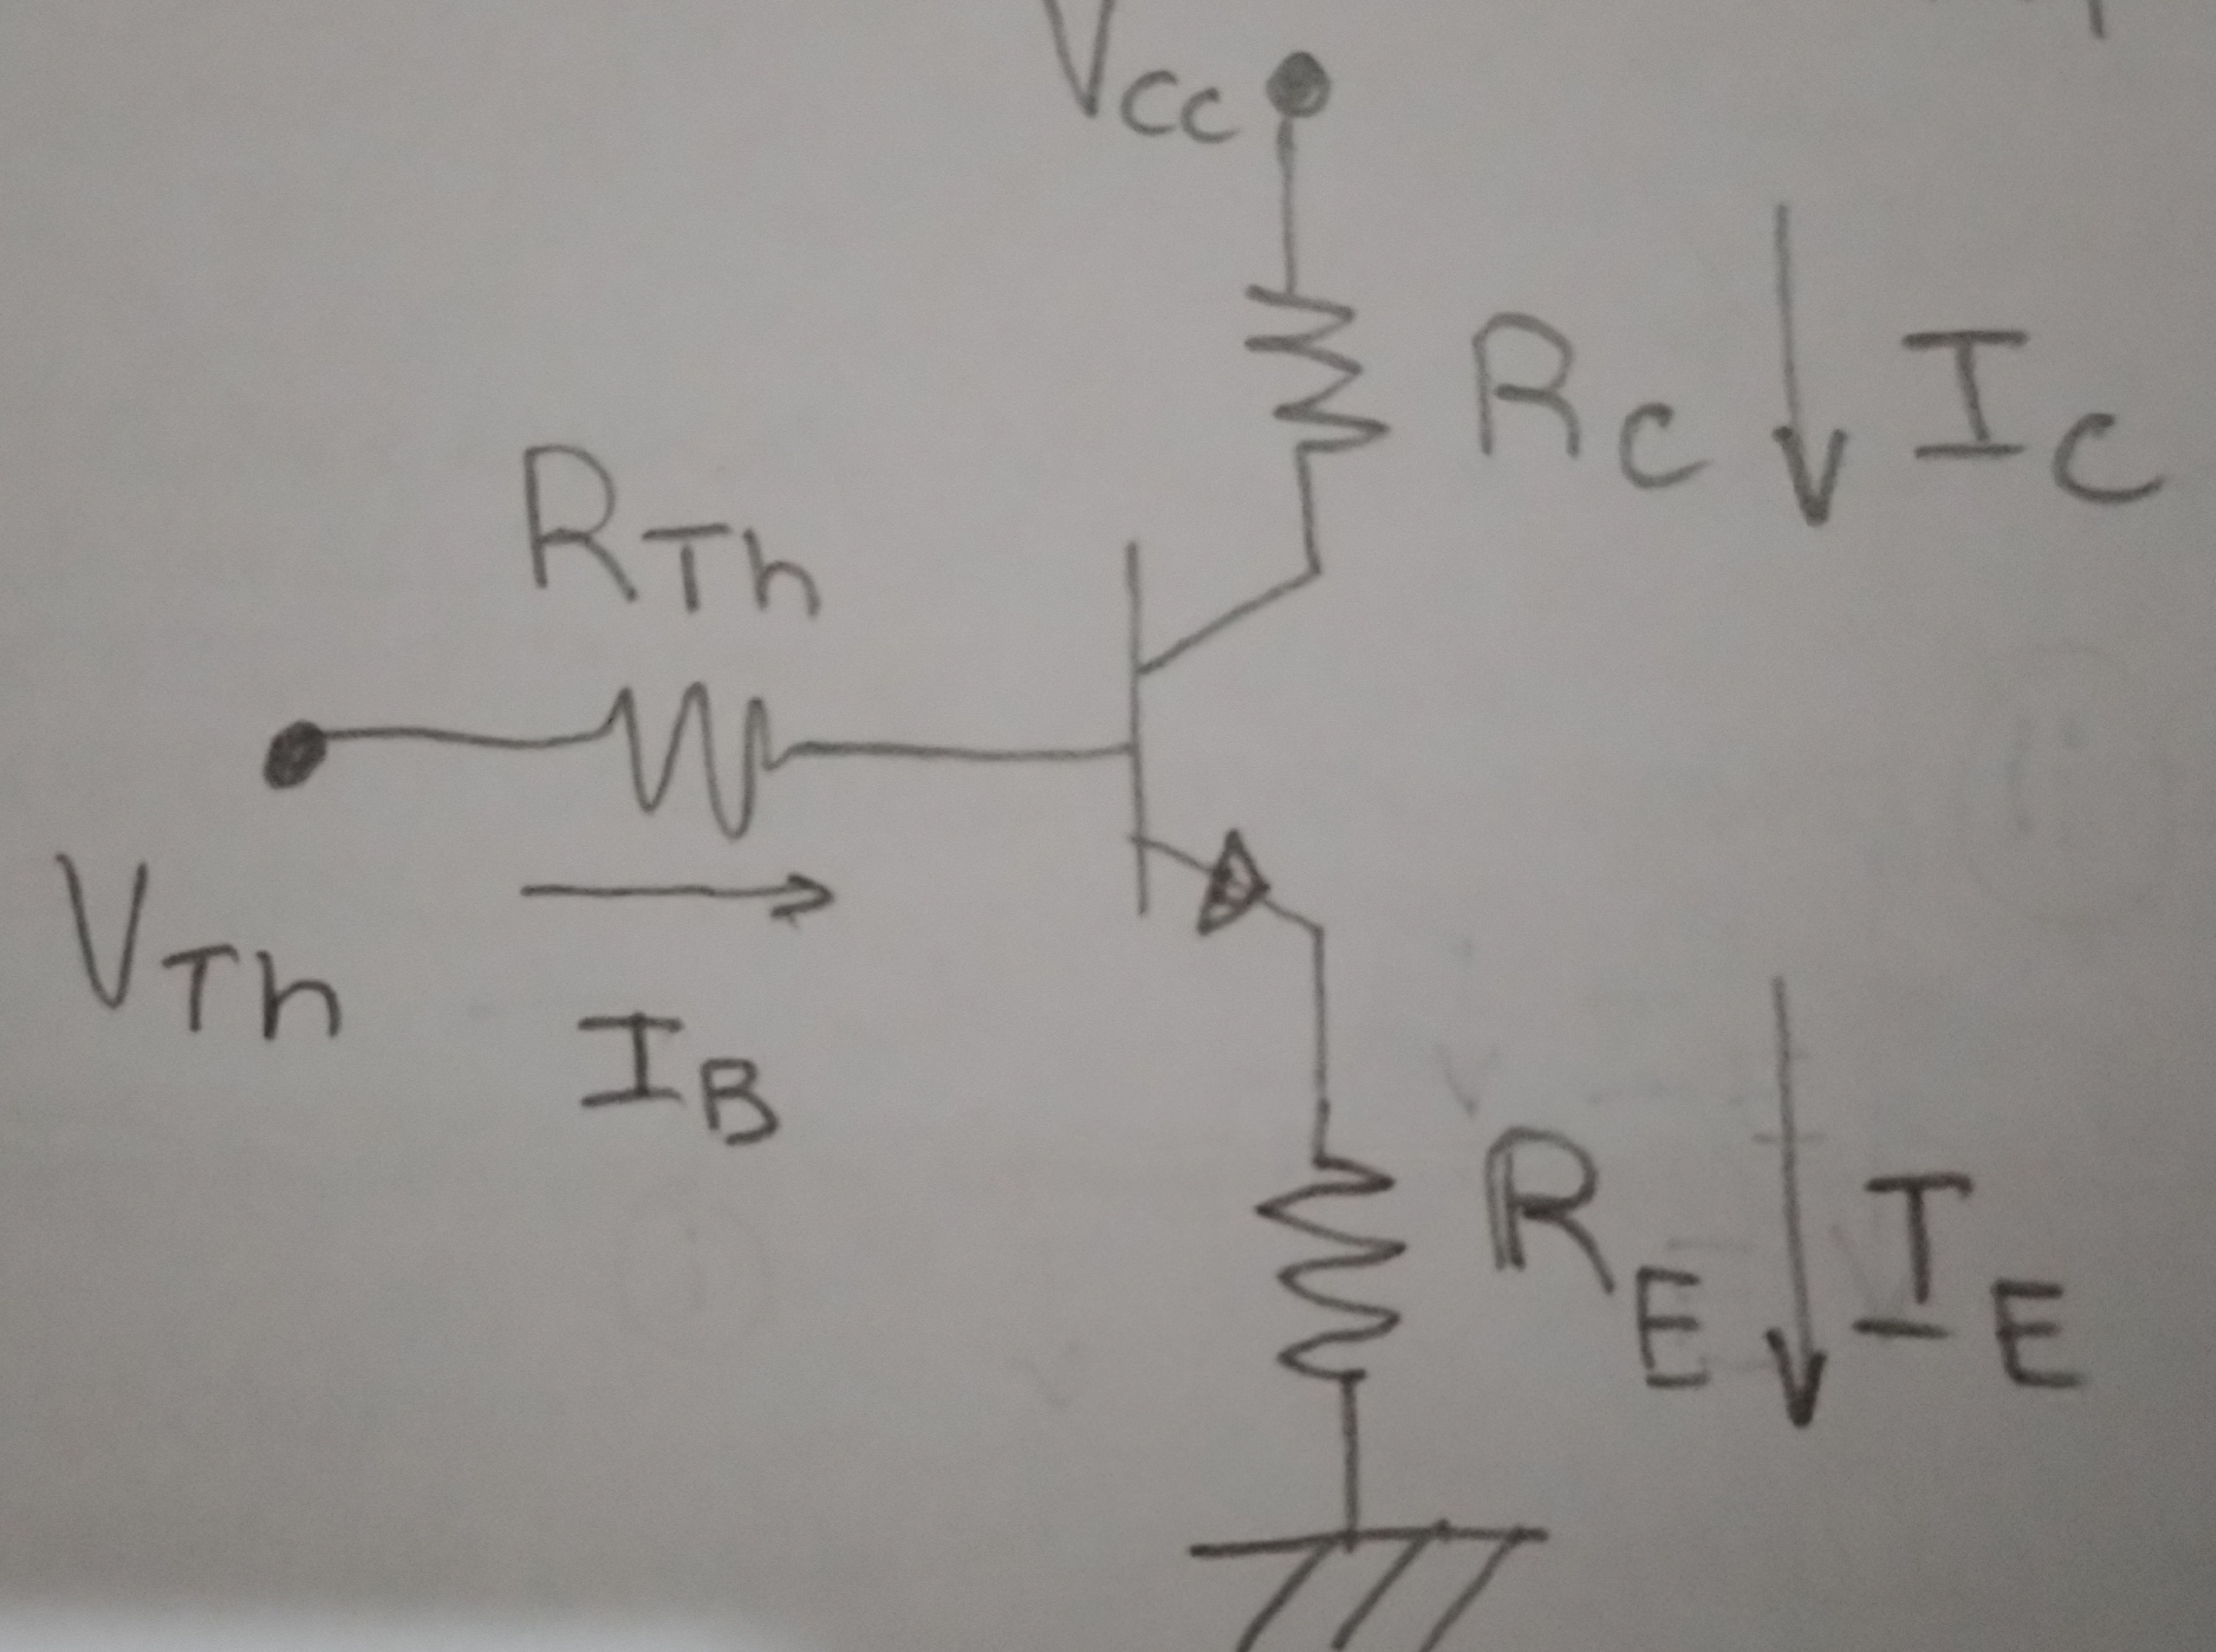 VCC
RC
IC
RTh
VTh
IB
RE
IE